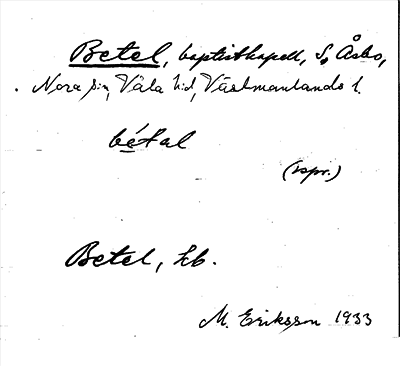 Betel, baptistkapell, S. Åsbo,
Nora sn, Våla hd, Västmanlands l.
bétal
(rspr.)
Betel, kb.
M. Eriksson 1933